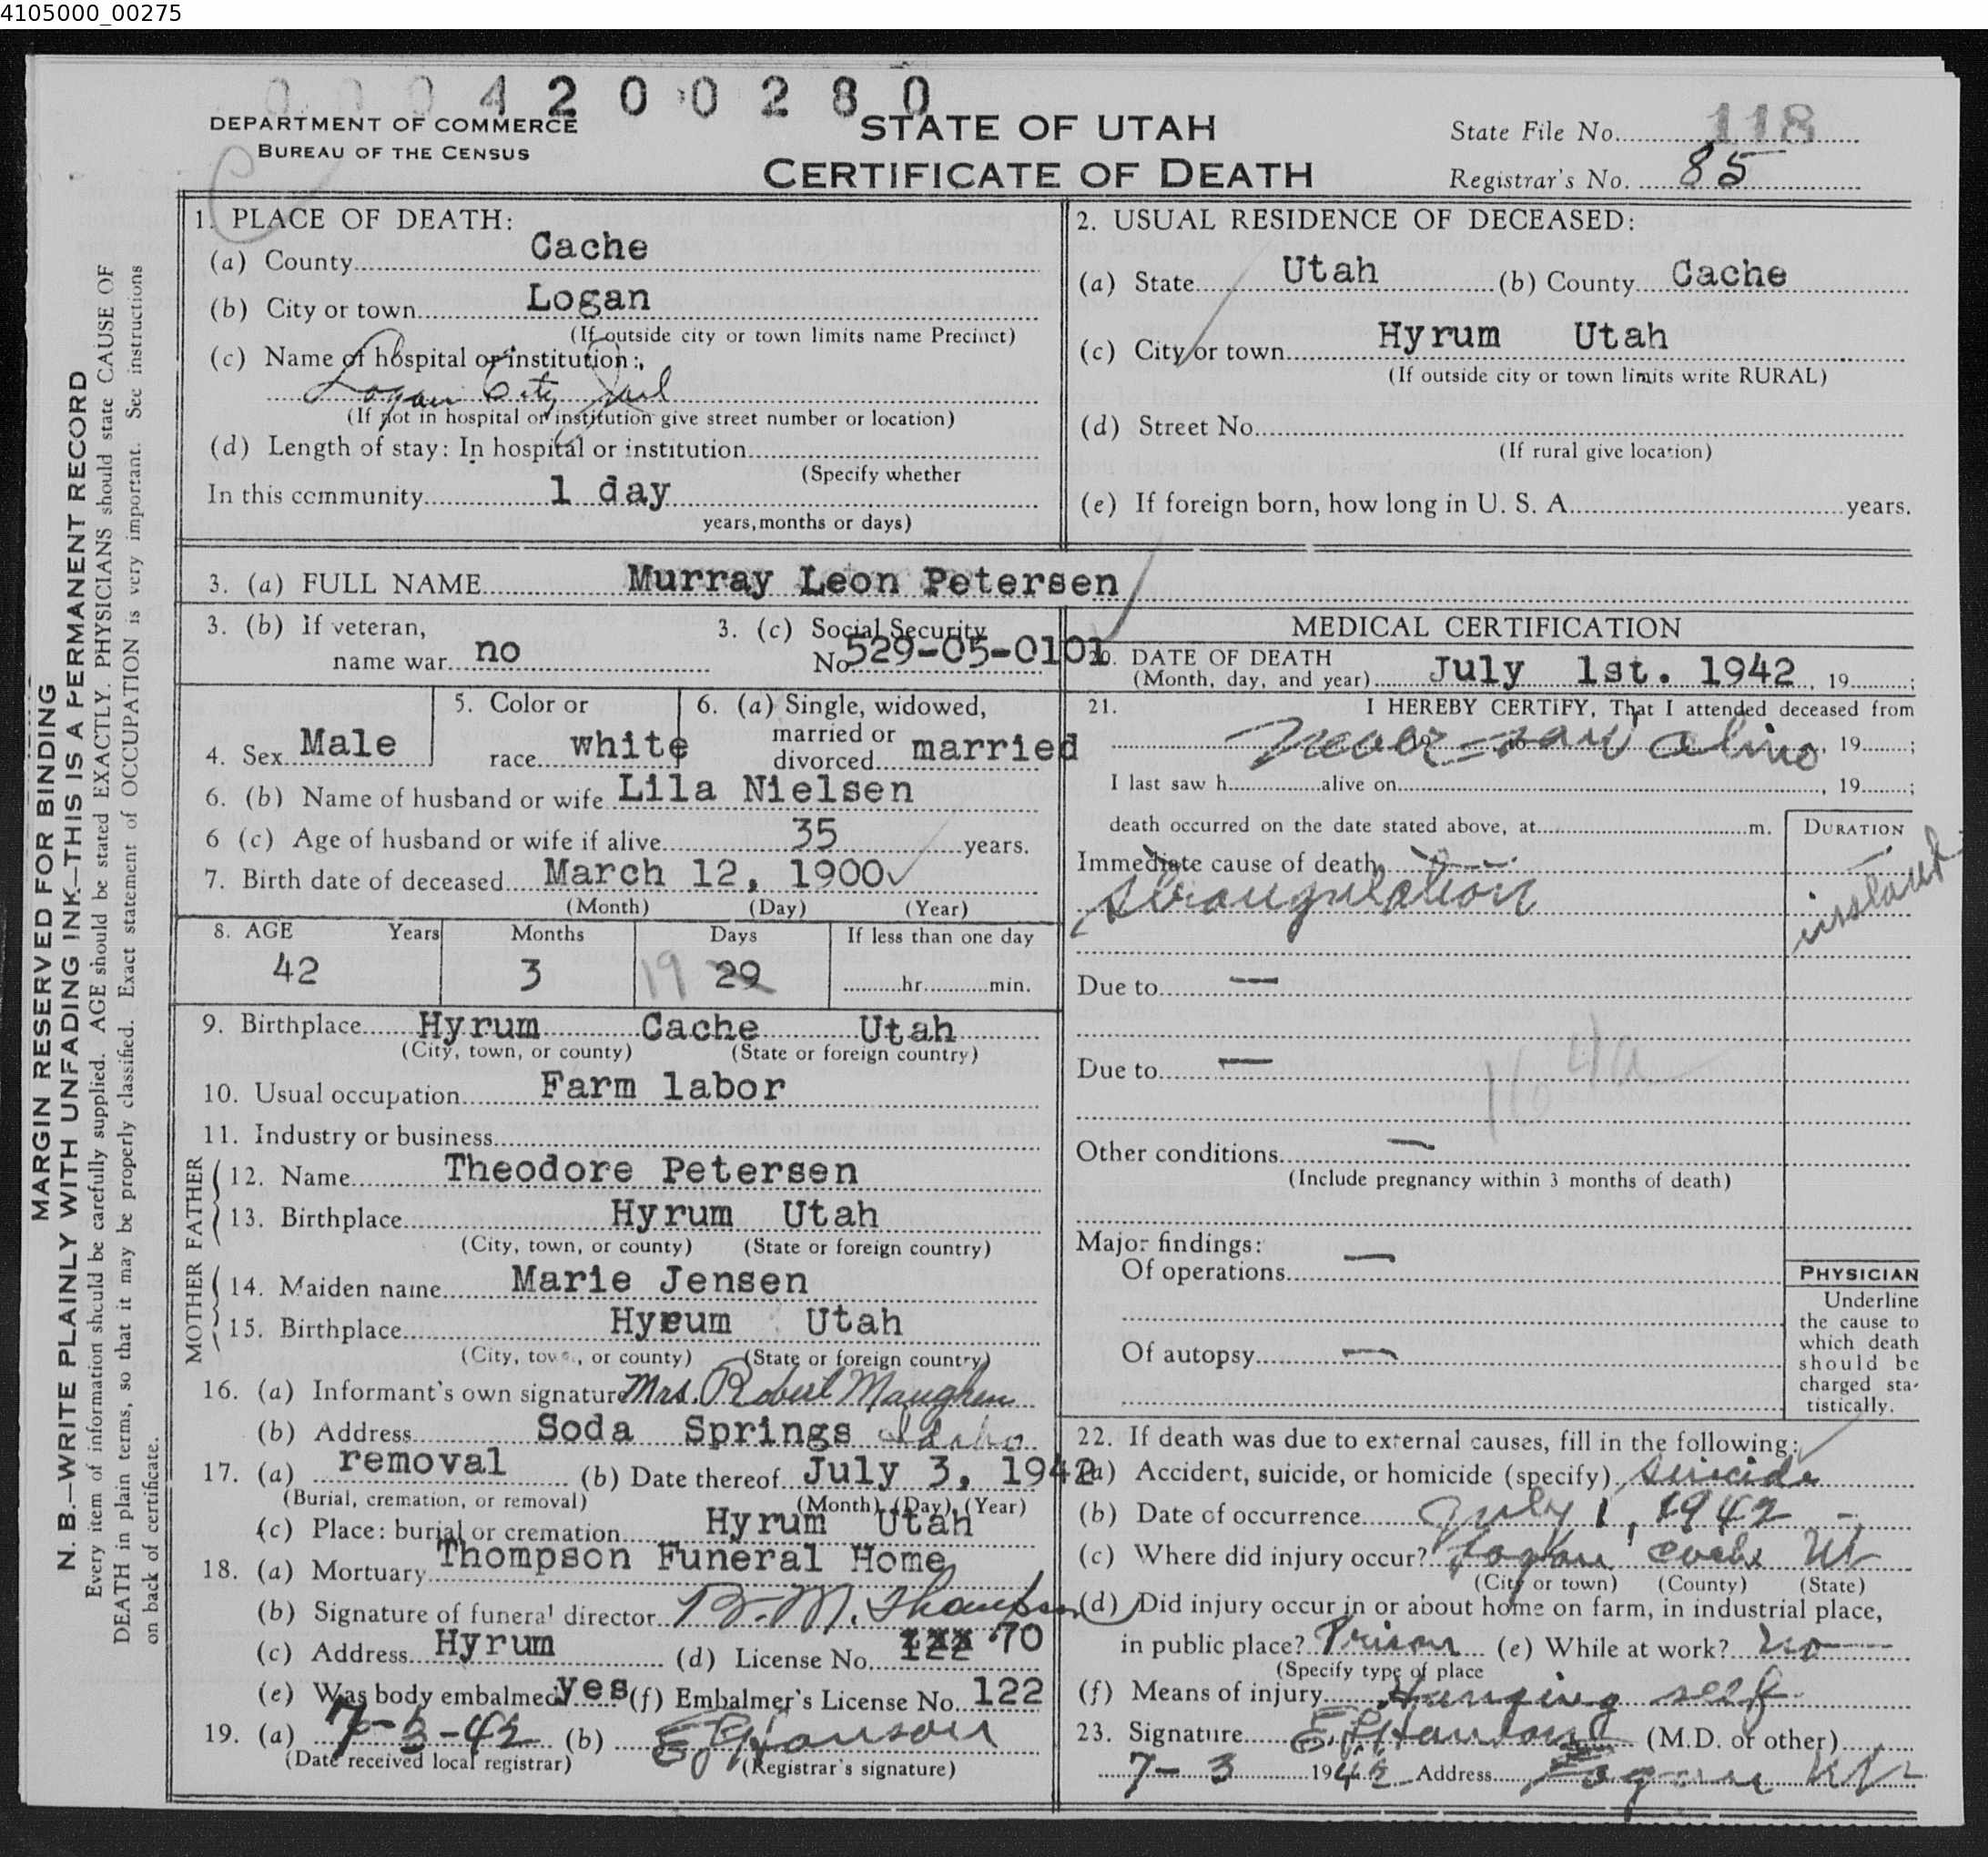 4105000_00275
0004200280
DEPARTMENT OF COMMERCE
BUREAU OF THE CENSUS
STATE OF UTAH
CERTIFICATE OF DEATH
State File No. 118
Registrar's No. 85
MARGIN RESERVED FOR BINDING
N. B.—WRITE PLAINLY WITH UNFADING INK—THIS IS A PERMANENT RECORD
Every item of information should be carefully supplied. AGE should be stated EXACTLY. PHYSICIANS should state CAUSE OF
DEATH in plain terms, so that it may be properly classified. Exact statement of OCCUPATION is very important. See instructions
on back of certificate.
1. PLACE OF DEATH:
(a) County Cache
(b) City or town Logan
(If outside city or town limits name Precinct)
(c) Name of hospital or institution:
Logan City Jail
(If not in hospital or institution give street number or location)
(d) Length of stay: In hospital or institution
(Specify whether
In this community 1 day
years, months or days)
2. USUAL RESIDENCE OF DECEASED:
(a) State Utah (b) County Cache
(c) City or town Hyrum Utah
(If outside city or town limits write RURAL)
(d) Street No.
(If rural give location)
(e) If foreign born, how long in U. S. A. years.
3. (a) FULL NAME Murray Leon Petersen
3. (b) If veteran,
name war no
3. (c) Social Security
No. 529-05-0101
4. Sex Male
5. Color or
race white
6. (a) Single, widowed,
married or
divorced married
6. (b) Name of husband or wife Lila Nielsen
6 (c) Age of husband or wife if alive 35 years.
7. Birth date of deceased March 12, 1900
(Month) (Day) (Year)
8. AGE Years Months Days If less than one day
42 3 19 29 hr. min.
9. Birthplace Hyrum Cache Utah
(City, town, or county) (State or foreign country)
10. Usual occupation Farm labor
11. Industry or business
FATHER
12. Name Theodore Petersen
13. Birthplace Hyrum Utah
(City, town, or county) (State or foreign country)
MOTHER
14. Maiden name Marie Jensen
15. Birthplace Hyrum Utah
(City, town, or county) (State or foreign country)
16. (a) Informant's own signature Mrs. Robert Maughen
(b) Address Soda Springs Idaho
17. (a) removal (b) Date thereof July 3, 1942
(Burial, cremation, or removal) (Month) (Day) (Year)
(c) Place: burial or cremation Hyrum Utah
18. (a) Mortuary Thompson Funeral Home
(b) Signature of funeral director B. M. Thompson
(c) Address Hyrum (d) License No. 122 70
(e) Was body embalmed yes (f) Embalmer's License No. 122
19. (a) 7-3-42 (b) E J Hanson
(Date received local registrar) (Registrar's signature)
MEDICAL CERTIFICATION
20. DATE OF DEATH
(Month, day, and year) July 1st. 1942, 19 ;
21. I HEREBY CERTIFY, That I attended deceased from
Never saw alive, 19 ;
I last saw h alive on , 19 ;
death occurred on the date stated above, at m.
DURATION
Immediate cause of death
strangulation
instant
Due to —
Due to —
164a
Other conditions —
(Include pregnancy within 3 months of death)
Major findings:
Of operations —
Of autopsy —
PHYSICIAN
Underline
the cause to
which death
should be
charged sta-
tistically.
22. If death was due to external causes, fill in the following:
(a) Accident, suicide, or homicide (specify) suicide
(b) Date of occurrence July 1, 1942
(c) Where did injury occur? Logan Cache Ut
(City or town) (County) (State)
(d) Did injury occur in or about home on farm, in industrial place,
in public place? Prison (e) While at work? no
(Specify type of place
(f) Means of injury Hanging self
23. Signature E J Hanson (M.D. or other)
7-3 1942 Address Logan Ut